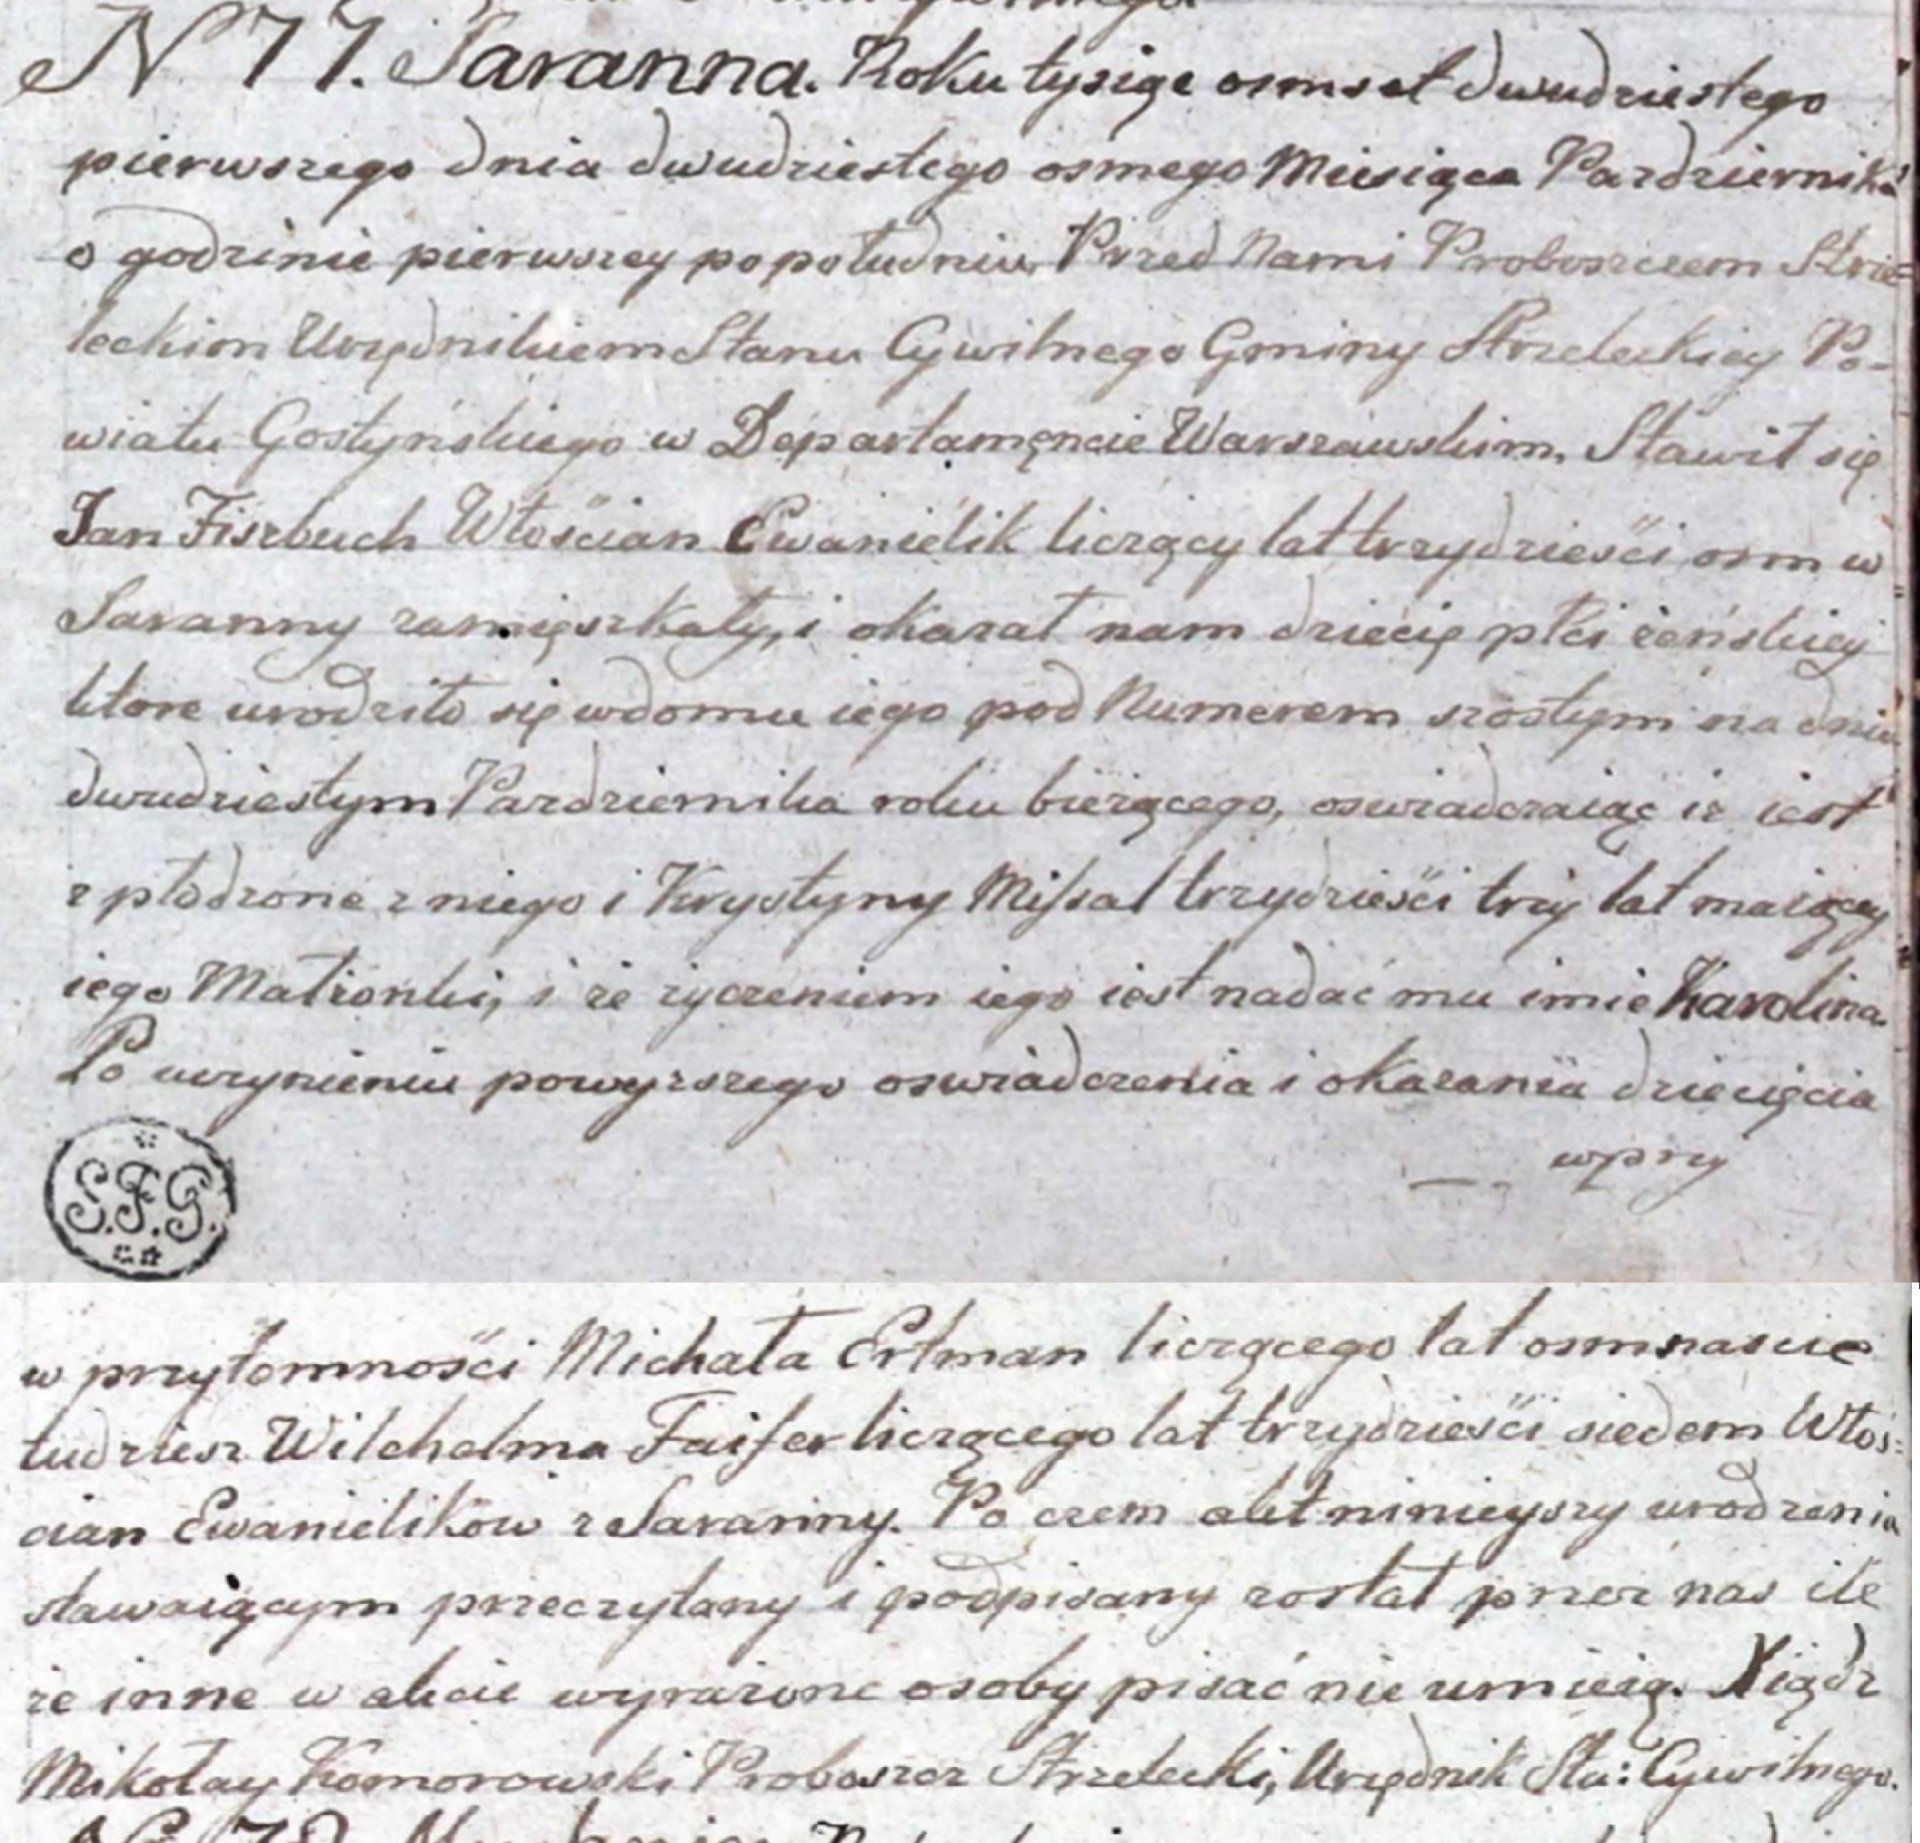 N 77. Saranna. Roku tysiąc osmset dwudziestego
pierwszego dnia dwudziestego osmego Miesiąca Pazdziernika
o godzinie pierwszey popołudniu, Przed Nami Proboszczem Strze=
leckim Urzędnikiem Stanu Cywilnego Gminy Strzeleckiey Po-
wiatu Gostyńskiego w Departamęncie Warszawskim, Stawił się
Jan Fiszbuch Włościan Ewanielik liczący lat trzydzieści osm w
Saranny zamięszkały, i okazał nam dziecię płci żeńskiey
ktore urodziło się wdomu iego pod Numerem szostym na dniu
dwudziestym Pazdziernika roku bieżącego, oswiadczaiąc iż iest
z płodzone z niego i Krystyny Missal trzydzieści trzy lat maiącey
iego Małżonki, i że życzeniem iego iest nadać mu imie Karolina.
Po uczynieniu powyższego oswiadczenia i okazania dziecięcia
wprzy
S.F.G.
w przytomności Michała Ertman liczącego lat osmnascie
tudziesz Wilchelma Faifer liczącego lat trzydzieści siedem Włoś=
cian Ewanielikow z Saranny. Po czem akt ninieyszy urodzenia
stawaiącym przeczytany i podpisany został przez nas ile
że inne w akcie wyrażone osoby pisać nie umieią. Xiądz
Mikołay Komorowski Proboszcz Strzelecki, Urzędnik Sta: Cywilnego.